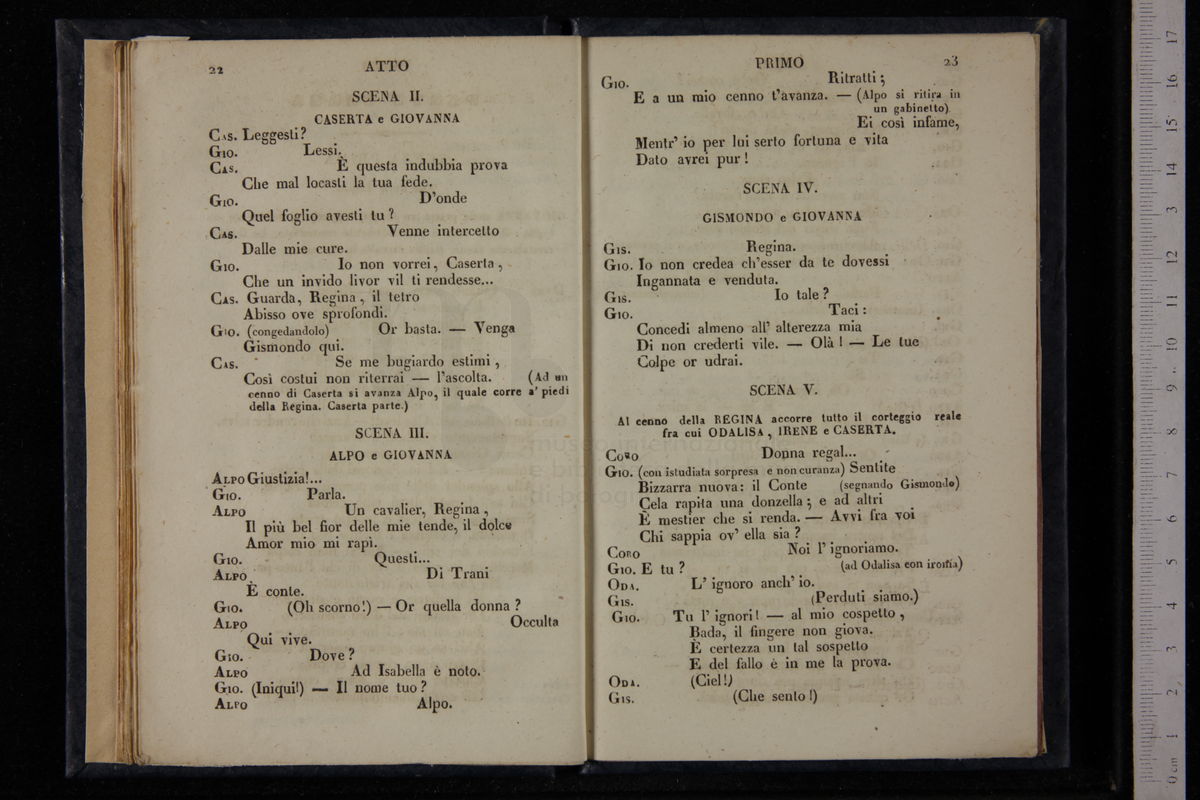 22 ATTO
SCENA II.
CASERTA e GIOVANNA
CAS. Leggesti?
GIO. Lessi.
CAS. È questa indubbia prova
Che mal locasti la tua fede.
GIO. D'onde
Quel foglio avesti tu?
CAS. Venne intercetto
Dalle mie cure.
GIO. Io non vorrei, Caserta,
Che un invido livor vil ti rendesse...
CAS. Guarda, Regina, il tetro
Abisso ove sprofondi.
GIO. (congedandolo) Or basta. — Venga
Gismondo qui.
CAS. Se me bugiardo estimi,
Così costui non riterrai — l'ascolta. (Ad un
cenno di Caserta si avanza Alpo, il quale corre a' piedi
della Regina. Caserta parte.)
SCENA III.
ALPO e GIOVANNA
ALPO Giustizia!...
GIO. Parla.
ALPO Un cavalier, Regina,
Il più bel fior delle mie tende, il dolce
Amor mio mi rapì.
GIO. Questi...
ALPO Di Trani
È conte.
GIO. (Oh scorno!) — Or quella donna?
ALPO Occulta
Qui vive.
GIO. Dove?
ALPO Ad Isabella è noto.
GIO. (Iniqui!) — Il nome tuo?
ALPO Alpo.
PRIMO 23
GIO. Ritratti;
E a un mio cenno t'avanza. — (Alpo si ritira in
un gabinetto)
Ei così infame,
Mentr' io per lui serto fortuna e vita
Dato avrei pur!
SCENA IV.
GISMONDO e GIOVANNA
GIS. Regina.
GIO. Io non credea ch'esser da te dovessi
Ingannata e venduta.
GIS. Io tale?
GIO. Taci:
Concedi almeno all' alterezza mia
Di non crederti vile. — Olà! — Le tue
Colpe or udrai.
SCENA V.
Al cenno della REGINA accorre tutto il corteggio reale
fra cui ODALISA, IRENE e CASERTA.
CORO Donna regal...
GIO. (con istudiata sorpresa e non curanza) Sentite
Bizzarra nuova: il Conte (segnando Gismondo)
Cela rapita una donzella; e ad altri
È mestier che si renda. — Avvi fra voi
Chi sappia ov' ella sia?
CORO Noi l' ignoriamo.
GIO. E tu? (ad Odalisa con ironia)
ODA. L' ignoro anch' io.
GIS. (Perduti siamo.)
GIO. Tu l' ignori! — al mio cospetto,
Bada, il fingere non giova.
È certezza un tal sospetto
E del fallo è in me la prova.
ODA. (Ciel!)
GIS. (Che sento!)